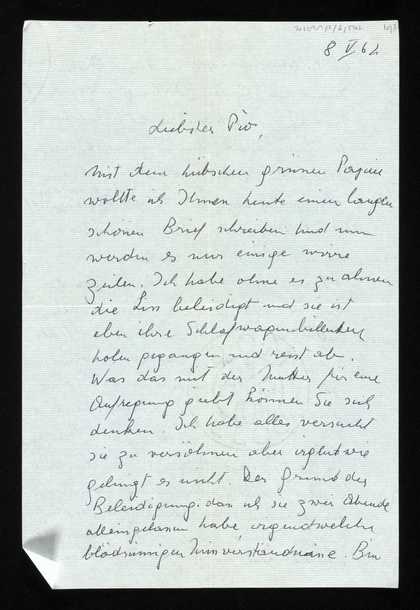 8 V 62
Liebster Pio,
Mit dem hübschen grünen Papier
wollte ich Ihnen heute einen langen
schönen Brief schreiben und nun
werden es nur einige wirre
Zeilen. Ich habe ohne es zu ahnen
die Liss beleidigt und sie ist
eben ihre Schlafwagenbillette
holen gegangen und reist ab.
Was das mit der Mutter für eine
Aufregung gibt können Sie sich
denken. Ich habe alles versucht
sie zu versöhnen aber irgendwie
gelingt es nicht. Der Grund der
Beleidigung: dass ich sie zwei Abende
alleingelassen habe irgendwelche
blödsinnigen Missverständnisse. Bin